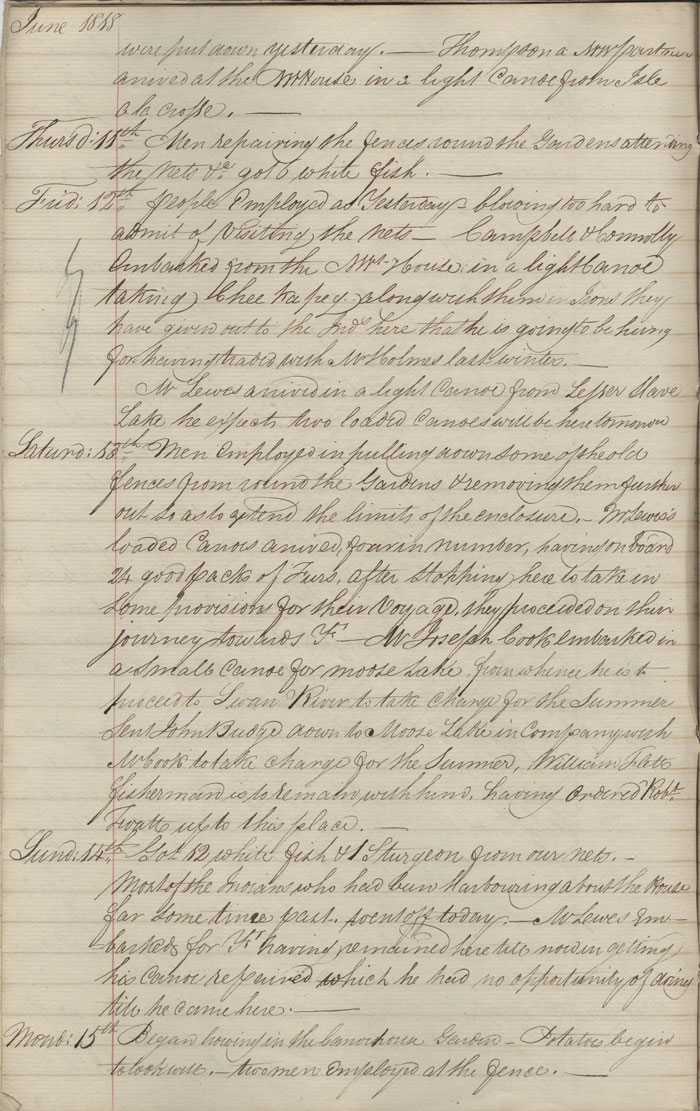 June 1818
were put down yesterday. — Thompson a NW partner
arrived at the NW House in a light Canoe from Isle
a la crosse. —
Thursd: 11th Men repairing the fences round the Gardens attending
the nets &c got 6 white fish. —
Frid: 12th People Employed as Yesterday & blowing too hard to
admit of Visiting the nets — Campbell & Connolly
Embarked from the NWt House in a light Canoe
taking Chee ka peg along with them in Irons they
have given out to the Inds here that he is going to be hung
for having traded with Mr Holmes last winter. —
Mr Lewes arrived in a light Canoe from Lesser Slave
Lake he expects two loaded Canoes will be here tomorrow
Saturd: 13th Men Employed in pulling down some of the old
fences from round the Gardens & removing them further
out so as to extend the limits of the enclosure. — Mr Lewes's
loaded Canoes arrived, four in number, having on board
24 good packs of Furs, after stopping here to take in
some provisions for their Voyage, they proceeded on their
journey towards YF — Mr Joseph Cook embarked in
a small canoe for moose Lake from whence he is to
proceed to Swan River to take charge for the Summer
Sent John Budge down to Moose Lake in Company with
Mr Cook to take charge for the Summer, William Flett
fisherman is to remain with him, having ordered Robt
Twatt up to this place. —
Sund: 14th Got 12 white fish & 1 Sturgeon from our nets. —
Most of the Indians who had been Harbouring about the House
for some time past, went off today. — Mr Lewes Em-
barked for YF having remained here till now in getting
his Canoe repaired which he had no opportunity of doing
till he came here. —
Mond: 15th Began howing in the Garden — Potatoes begin
to look well. — two men Employed at the fence. —